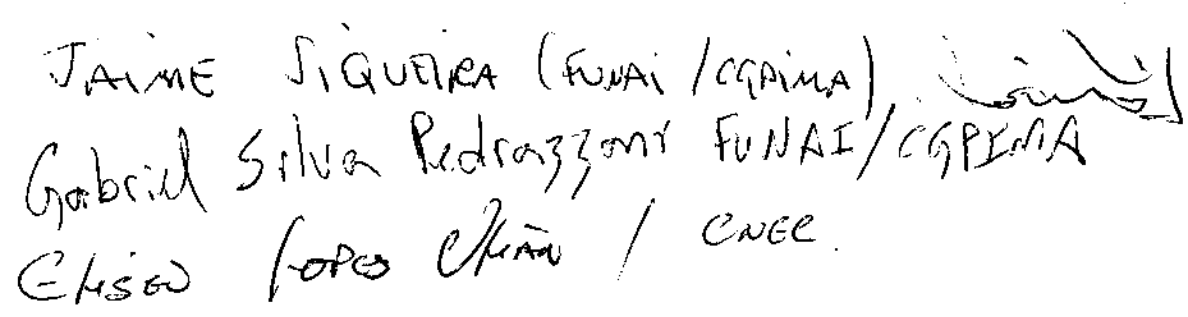 JAIME SIQUEIRA (FUNAI/CGPIMA)
Gabriel Silva Pedrazzani FUNAI/CGPIMA
Eliseu Lopes / CNEC.